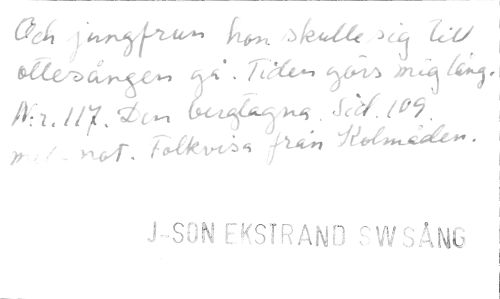 Och jungfrun hon skulle sig till
ottesången gå. Tiden görs mig lång.
Nr. 117. Den bergtagna. Sid. 109.
med not. Folkvisa från Kolmården.
J-SON EKSTRAND SWSÅNG